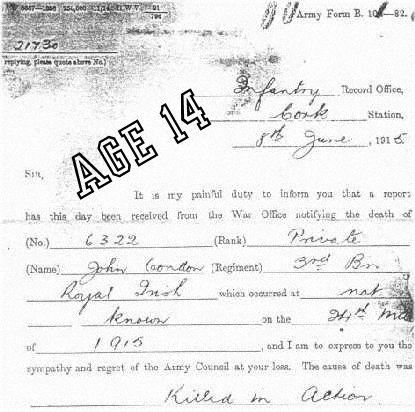 Army Form B. 104—82.
21730
replying, please quote above No.)
Infantry Record Office,
Cork Station,
8th June, 1915
AGE 14
Sir,
It is my painful duty to inform you that a report
has this day been received from the War Office notifying the death of
(No.) 6322 (Rank) Private
(Name) John Condon (Regiment) 3rd Bn
Royal Irish which occurred at not
known on the 24th
of 1915, and I am to express to you the
sympathy and regret of the Army Council at your loss. The cause of death was
Killed in Action